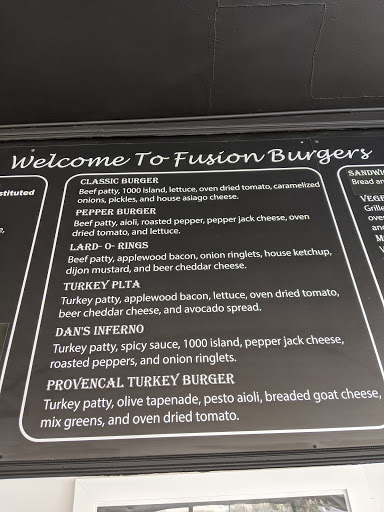 Welcome To Fusion Burgers
CLASSIC BURGER
Beef patty, 1000 island, lettuce, oven dried tomato, caramelized
onions, pickles, and house asiago cheese.
PEPPER BURGER
Beef patty, aioli, roasted pepper, pepper jack cheese, oven
dried tomato, and lettuce.
LARD- O- RINGS
Beef patty, applewood bacon, onion ringlets, house ketchup,
dijon mustard, and beer cheddar cheese.
TURKEY PLTA
Turkey patty, applewood bacon, lettuce, oven dried tomato,
beer cheddar cheese, and avocado spread.
DAN'S INFERNO
Turkey patty, spicy sauce, 1000 island, pepper jack cheese,
roasted peppers, and onion ringlets.
PROVENCAL TURKEY BURGER
Turkey patty, olive tapenade, pesto aioli, breaded goat cheese,
mix greens, and oven dried tomato.
stituted
SANDW
Bread an
VEGE
Grille